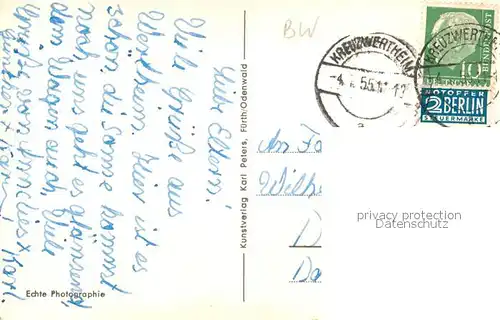 Liebe Eltern!
Viele Grüße aus
Wertheim. Hier ist es
schön, die Sonne kommt
noch, uns geht es glänzend,
dem Wagen auch. Viele
Grüße von
Echte Photographie
Kunstverlag Karl Peters, Fürth/Odenwald
BW
KREUZWERTHEIM
-4. 55.-12
KREUZWERTHEIM
10
NOTOPFER
2 BERLIN
STEUERMARKE
An Fa
Wilh
D
Da
privacy protection
Datenschutz